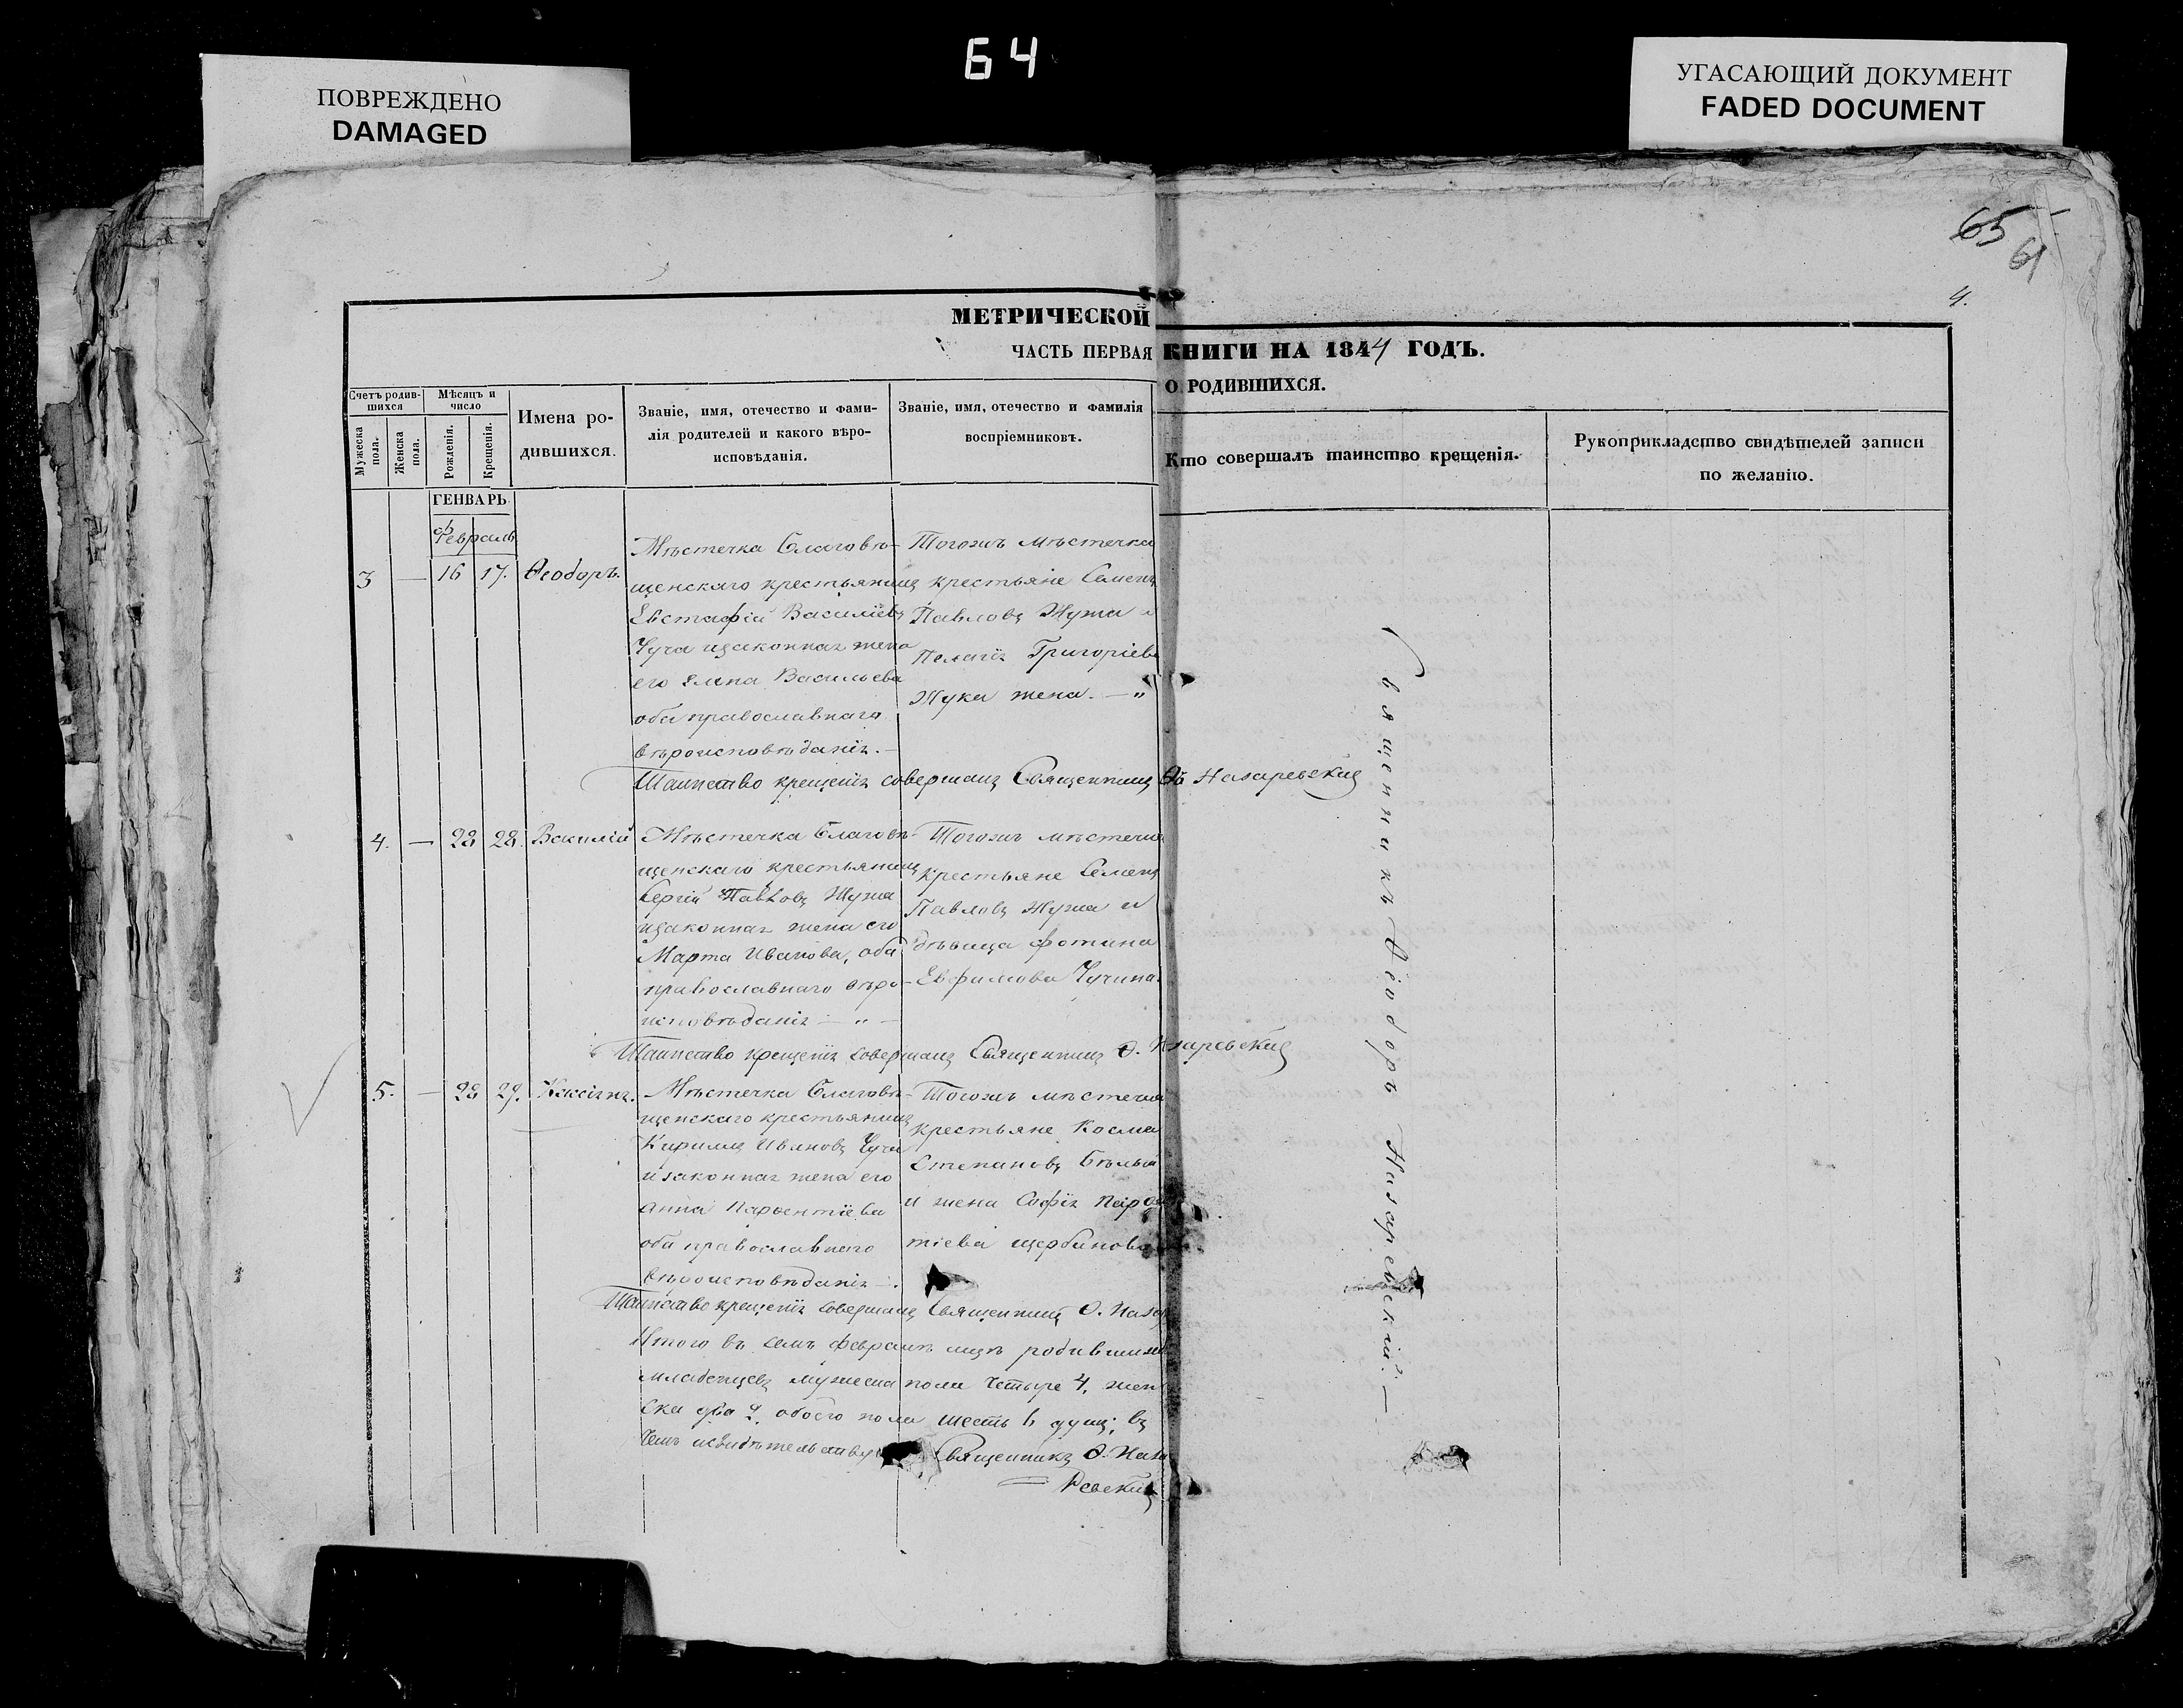 64
ПОВРЕЖДЕНО
DAMAGED
УГАСАЮЩИЙ ДОКУМЕНТ
FADED DOCUMENT
65
61
4.
МЕТРИЧЕСКОЙ
КНИГИ НА 1844 ГОДЪ.
ЧАСТЬ ПЕРВАЯ
О РОДИВШИХСЯ.
Счетъ родив-
шихся
Мужеска
пола.
Женска
пола.
Мѣсяцъ и
число
Рожденія.
Крещенія.
Имена ро-
дившихся.
Званіе, имя, отечество и фами-
лія родителей и какого вѣро-
исповѣданія.
Званіе, имя, отечество и фамилія
воспріемниковъ.
Кто совершалъ таинство крещенія.
Рукоприкладство свидѣтелей записи
по желанію.
ГЕНВАРЬ
Февраль
3 — 16 17. Ѳеодоръ.
Мѣстечка Благовѣ-
щенскаго крестьянинъ
Евстафій Василіевъ
Чуча изаконная жена
его Елена Васильева
оба православнаго
вѣроисповѣданія. —
Тогожъ мѣстечка
крестьяне Семенъ
Павловъ Жужа и
Пелагія Григоріева
Жука жена. — „
Таинство крещенія совершалъ Священникъ Ѳ. Назаревскій
4. — 28 28. Василій
Мѣстечка Благовѣ-
щенскаго крестьянинъ
Сергій Павловъ Жужа
изаконная жена его
Марта Иванова, оба
православнаго вѣро-
исповѣданія — „ —
Тогожъ мѣстечка
крестьяне Семенъ
Павловъ Жужа и
дѣвица Фотина
Евфимова Чучина.
Таинство крещенія совершалъ Священникъ Ѳ. Назаревскій
5. — 28 29.
Мѣстечка Благовѣ-
щенскаго крестьянинъ
Кириллъ Ивановъ Чуча
и законная жена его
Анна Парфентіева
оба православнаго
вѣроисповѣданія —.
Тогожъ мѣстечка
крестьяне Косма
Степановъ Бѣлый
и жена Софія Парфен
тіева Щербинова
Таинство крещенія совершалъ Священникъ Ѳ. Назар
Итого въ семъ Февралѣ мцѣ родившихся
младенцевъ мужеска пола четыре 4, жен
ска два 2. обоего пола шесть 6 душъ; въ
чемъ исвидѣтельствую Священникъ Ѳ. Наза
ревскій
Священникъ Ѳеодоръ Назаревскій. —